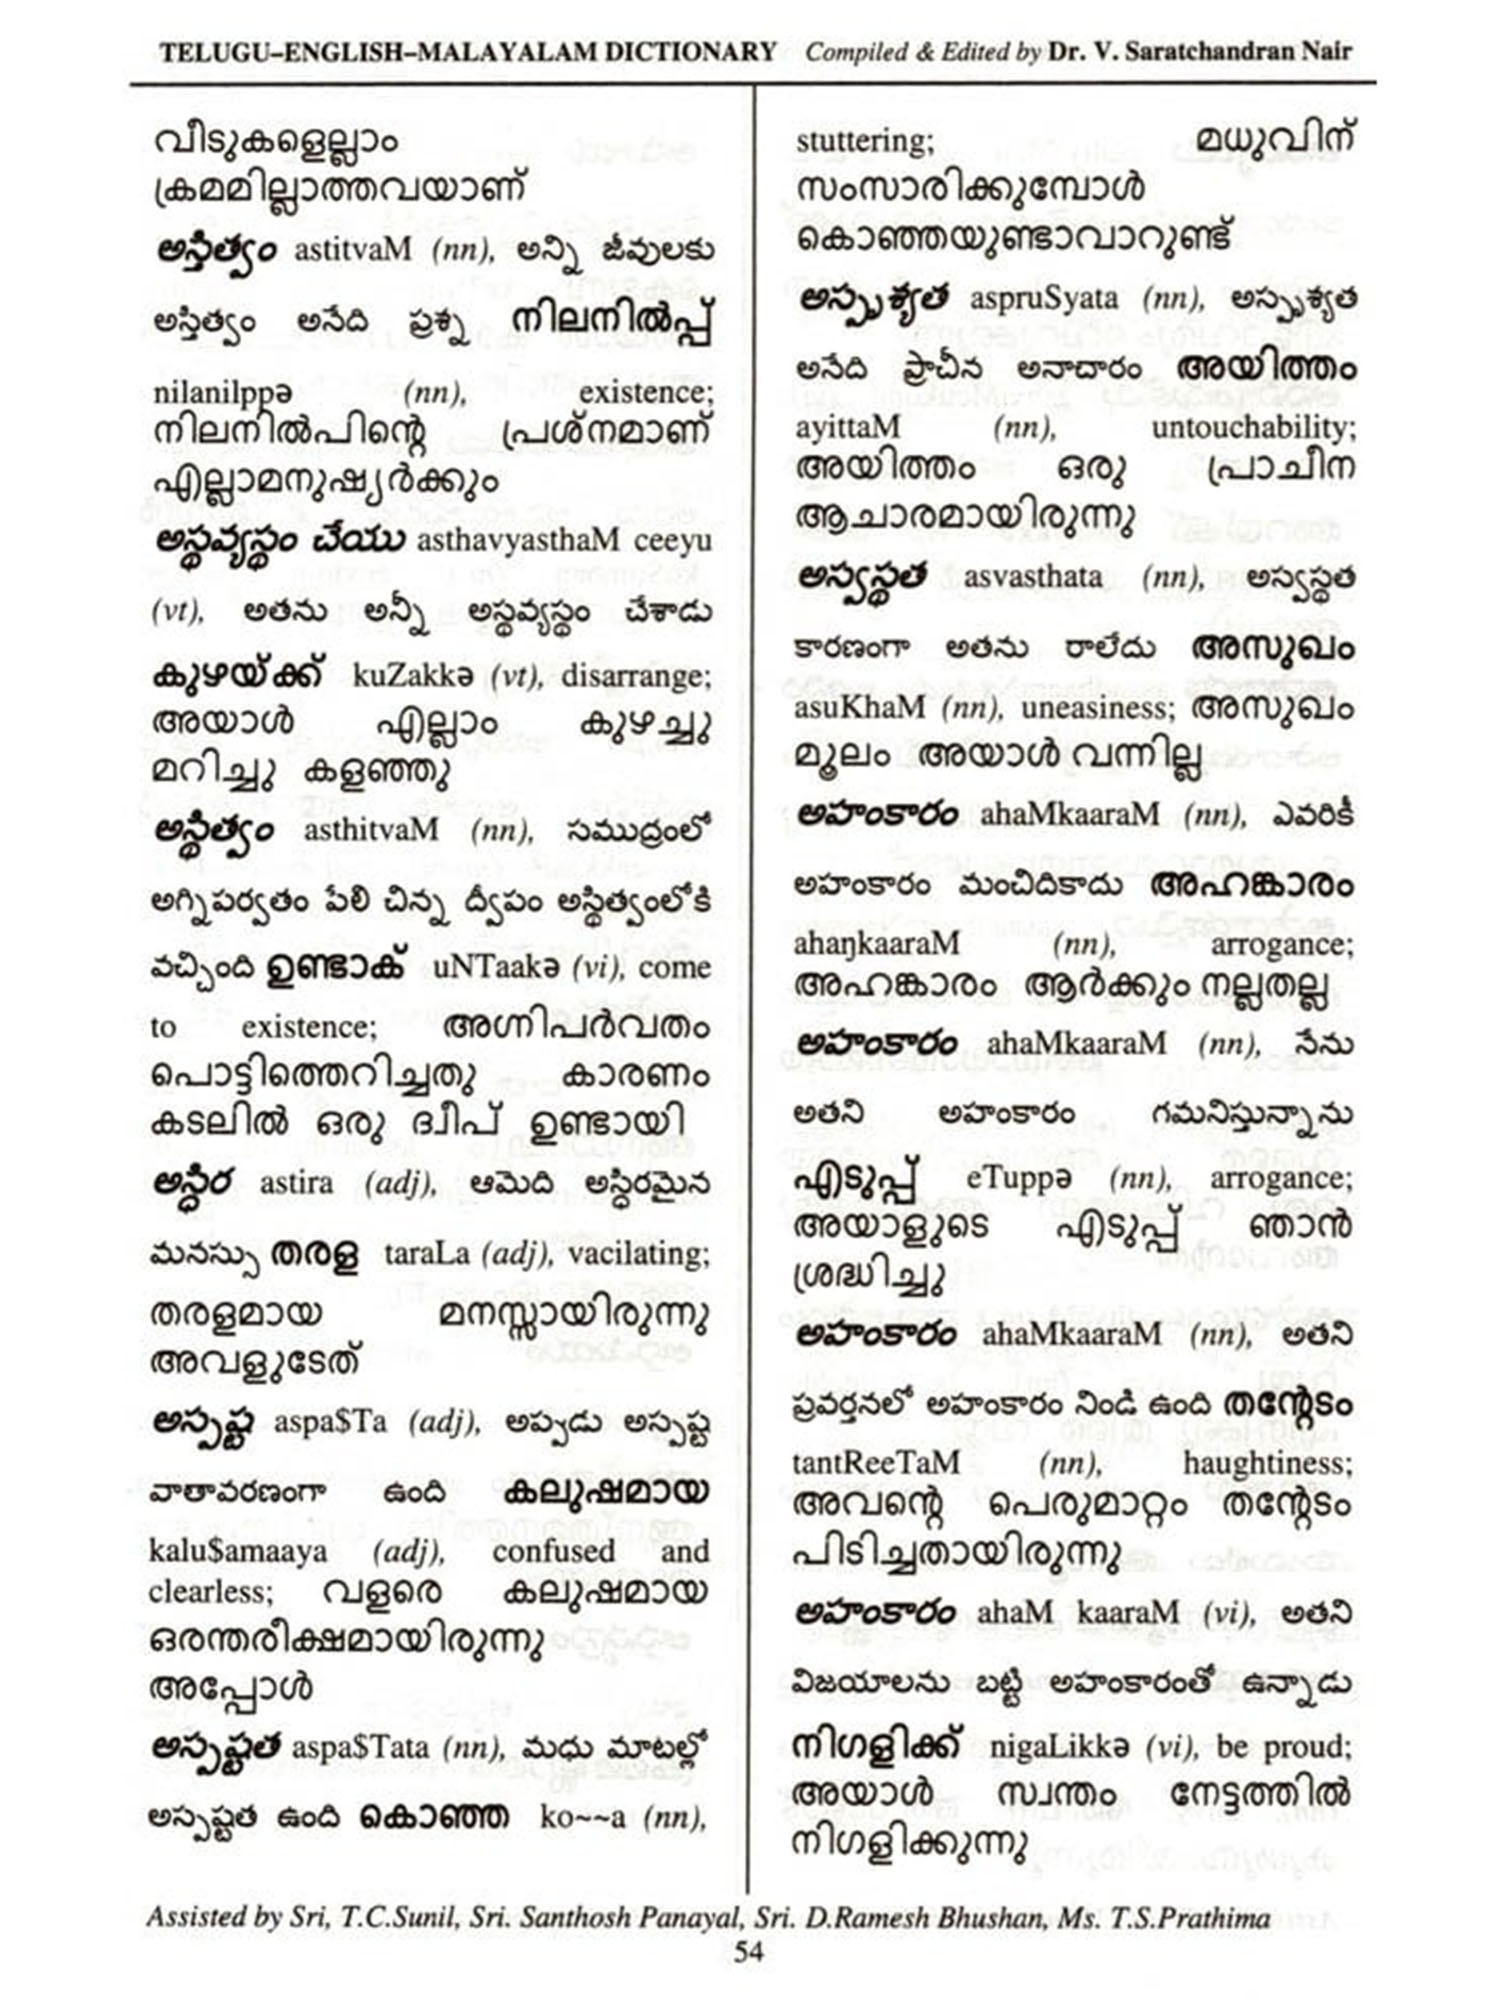 TELUGU–ENGLISH–MALAYALAM DICTIONARY Compiled & Edited by Dr. V. Saratchandran Nair
വീടുകളെല്ലാം
ക്രമമില്ലാത്തവയാണ്
అస్తిత్వం astitvaM (nn), అన్ని జీవులకు
అస్తిత్వం అనేది ప్రశ్న നിലനിൽപ്പ്
nilanilppə (nn), existence;
നിലനിൽപിന്റെ പ്രശ്നമാണ്
എല്ലാമനുഷ്യർക്കും
అస్థవ్యస్థం చేయు asthavyasthaM ceeyu
(vt), అతను అన్నీ అస్థవ్యస్థం చేశాడు
കുഴയ്ക്ക് kuZakkə (vt), disarrange;
അയാൾ എല്ലാം കുഴച്ചു
മറിച്ചു കളഞ്ഞു
అస్థిత్వం asthitvaM (nn), సముద్రంలో
అగ్నిపర్వతం పేలి చిన్న ద్వీపం అస్థిత్వంలోకి
వచ్చింది ഉണ്ടാക് uNTaakə (vi), come
to existence; അഗ്നിപർവതം
പൊട്ടിത്തെറിച്ചതു കാരണം
കടലിൽ ഒരു ദ്വീപ് ഉണ്ടായി
అస్థిర astira (adj), ఆమెది అస్థిరమైన
మనస్సు തരള taraLa (adj), vacilating;
തരളമായ മനസ്സായിരുന്നു
അവളുടേത്
అస్పష్ట aspa$Ta (adj), అప్పుడు అస్పష్ట
వాతావరణంగా ఉంది കലുഷമായ
kalu$amaaya (adj), confused and
clearless; വളരെ കലുഷമായ
ഒരന്തരീക്ഷമായിരുന്നു
അപ്പോൾ
అస్పష్టత aspa$Tata (nn), మధు మాటల్లో
అస్పష్టత ఉంది കൊഞ്ഞ ko~~a (nn),
stuttering; മധുവിന്
സംസാരിക്കുമ്പോൾ
കൊഞ്ഞയുണ്ടാവാറുണ്ട്
అస్పృశ్యత aspruSyata (nn), అస్పృశ్యత
అనేది ప్రాచీన అనాచారం അയിത്തം
ayittaM (nn), untouchability;
അയിത്തം ഒരു പ്രാചീന
ആചാരമായിരുന്നു
అస్వస్థత asvasthata (nn), అస్వస్థత
కారణంగా అతను రాలేదు അസുഖം
asuKhaM (nn), uneasiness; അസുഖം
മൂലം അയാൾ വന്നില്ല
అహంకారం ahaMkaaraM (nn), ఎవరికీ
అహంకారం మంచిదికాదు അഹങ്കാരം
ahaŋkaaraM (nn), arrogance;
അഹങ്കാരം ആർക്കും നല്ലതല്ല
అహంకారం ahaMkaaraM (nn), నేను
అతని అహంకారం గమనిస్తున్నాను
എടുപ്പ് eTuppə (nn), arrogance;
അയാളുടെ എടുപ്പ് ഞാൻ
ശ്രദ്ധിച്ചു
అహంకారం ahaMkaaraM (nn), అతని
ప్రవర్తనలో అహంకారం నిండి ఉంది തന്റേടം
tantReeTaM (nn), haughtiness;
അവന്റെ പെരുമാറ്റം തന്റേടം
പിടിച്ചതായിരുന്നു
అహంకారం ahaM kaaraM (vi), అతని
విజయాలను బట్టి అహంకారంతో ఉన్నాడు
നിഗളിക്ക് nigaLikkə (vi), be proud;
അയാൾ സ്വന്തം നേട്ടത്തിൽ
നിഗളിക്കുന്നു
Assisted by Sri, T.C.Sunil, Sri. Santhosh Panayal, Sri. D.Ramesh Bhushan, Ms. T.S.Prathima
54